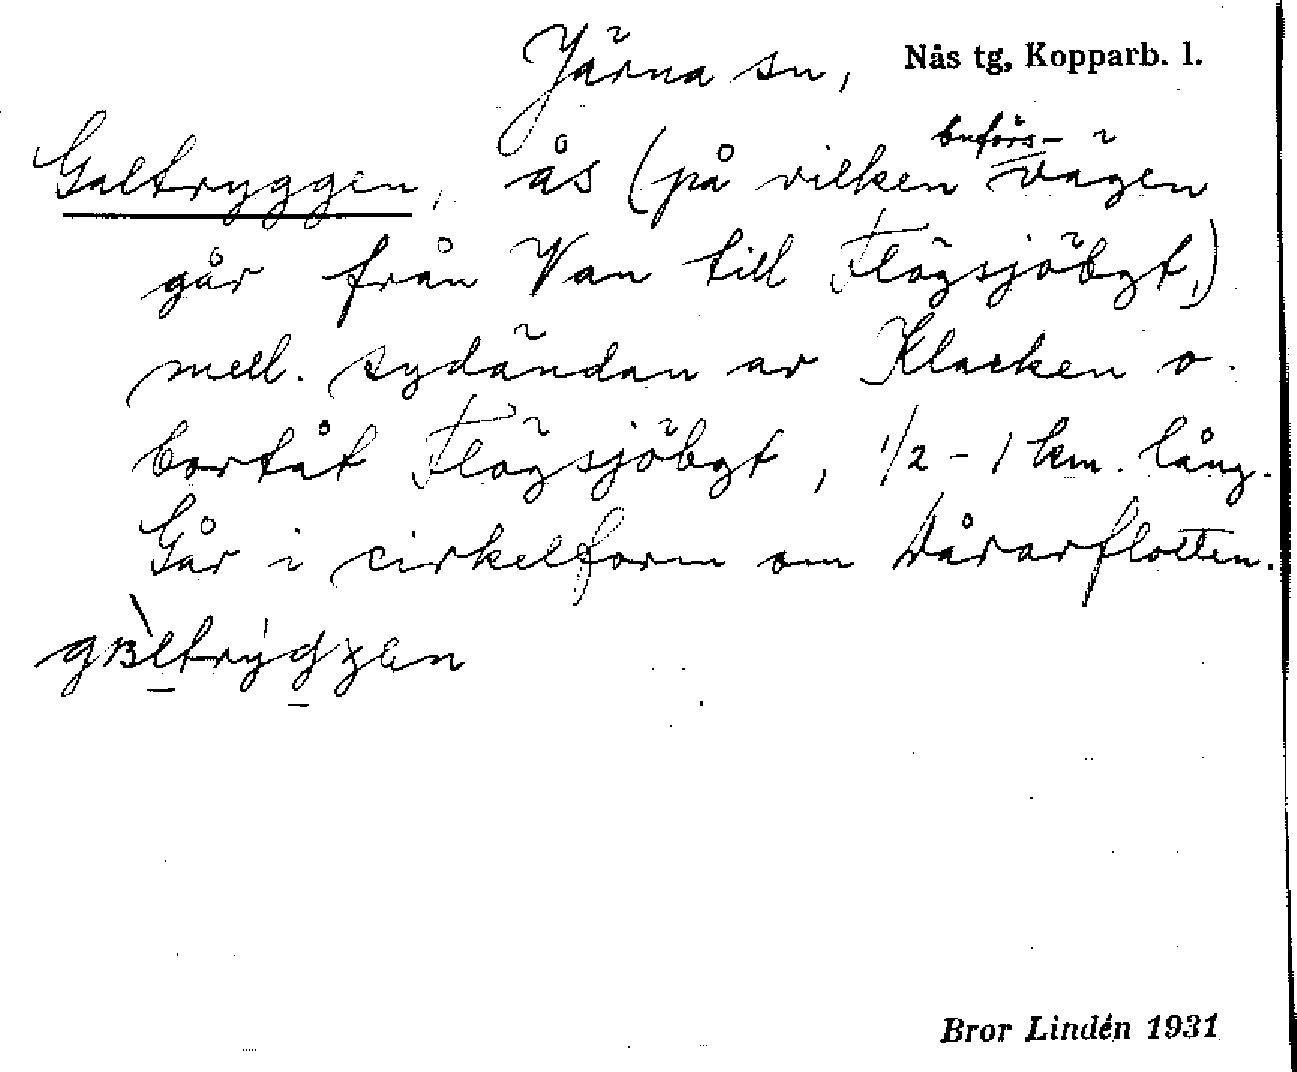 Järna sn, Nås tg, Kopparb. l.
buförs-
Galtryggen, ås (på vilken vägen
går från Van till Flögsjöbgt,)
mell. sydändan av Klacken o.
bortåt Flögsjöbgt, 1/2 - 1 km. lång.
Går i cirkelform om Vårarflotten.
Bror Lindén 1931